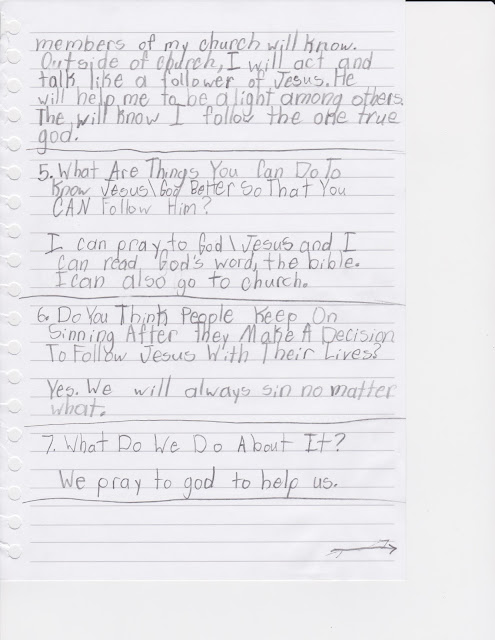 members of my church will know.
Outside of church, I will act and
talk like a follower of Jesus. He
will help me to be a light among others.
The will know I follow the one true
god.
5. What Are Things You Can Do To
Know Jesus\God Better So That You
CAN Follow Him?
I can pray to God\Jesus and I
can read God's word, the bible.
I can also go to church.
6. Do You Think People Keep On
Sinning After They Make A Decision
To Follow Jesus With Their Lives?
Yes. We will always sin no matter
what.
7. What Do We Do About It?
We pray to god to help us.